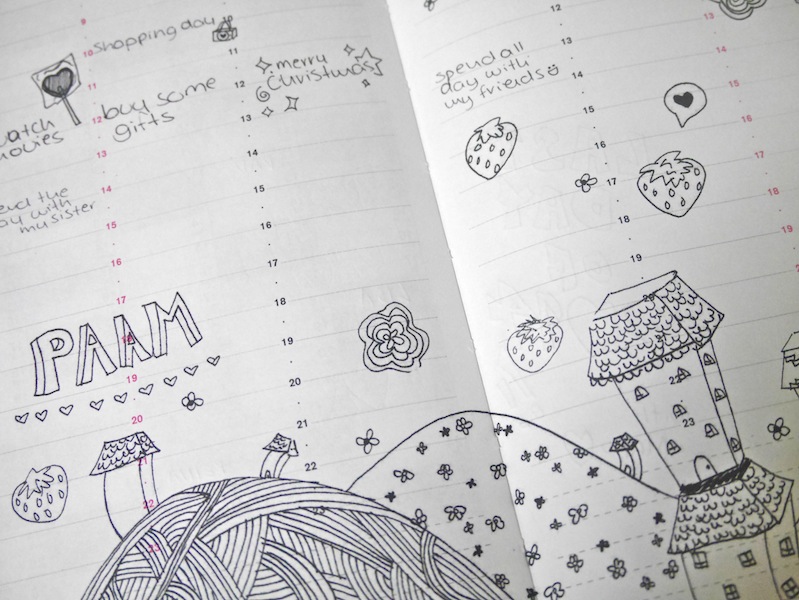 9
10
11
12
13
14
15
16
17
18
19
20
21
22
23
shopping day
buy some
gifts
movies
the
with
my sister
PAAM
11
12
13
14
15
16
17
18
19
20
21
22
merry
Christmas
spend all
day with
my friends
12
13
14
15
16
17
18
19
20
22
23
13
14
15
16
17
18
19